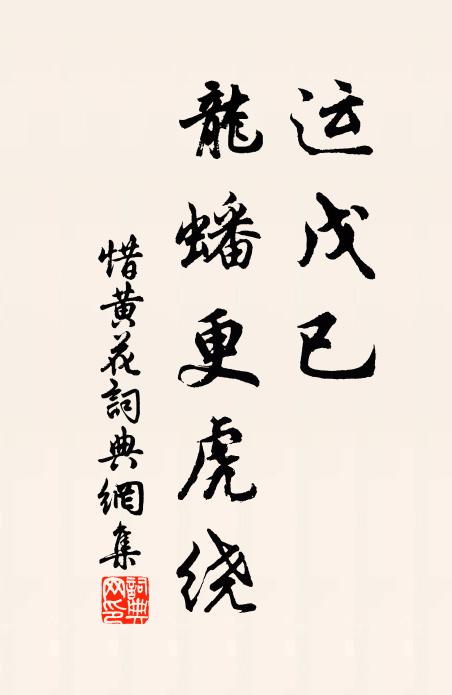 运戊已
龍蟠更虎绕
惜黄花詞典網集
詞典网印